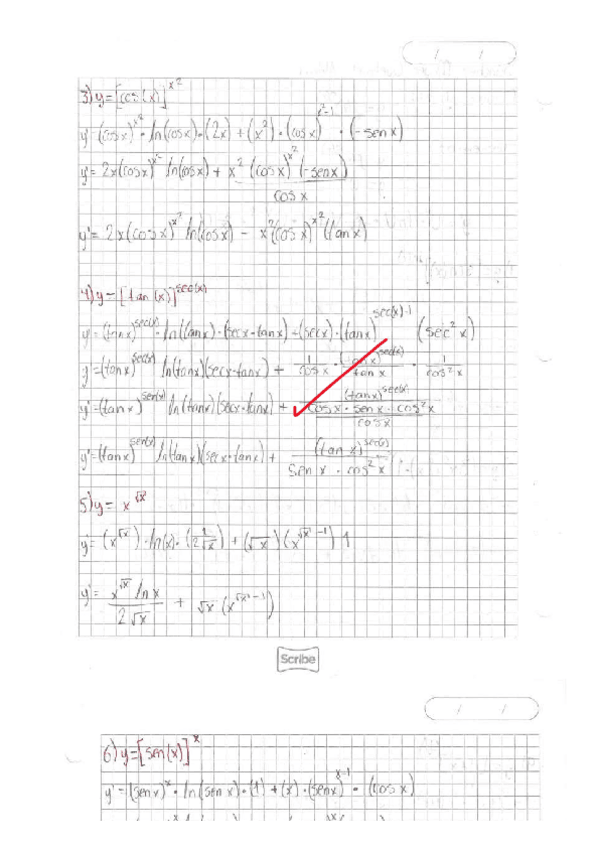 3) y = [cos(x)]^x²
y' = (cosx)^x² · ln(cosx) · (2x) + (x²) · (cosx)^x²-1 · (-senx)
y' = 2x(cosx)^x² ln(cosx) + x² (cosx)^x² (-senx) / cosx
y' = 2x(cosx)^x² ln(cosx) - x²(cosx)^x² (tanx)
4) y = [tan(x)]^sec(x)
y = (tanx)^sec(x) · ln(tanx) · (secx·tanx) + (secx) · (tanx)^sec(x)-1 (sec²x)
y' = (tanx)^sec(x) ln(tanx)(secx·tanx) + 1/cosx · (tanx)^sec(x) / tanx · 1/cos²x
y' = (tanx)^sen(x) ln(tanx)(secx·tanx) + (tanx)^sec(x) / cosx · senx · cos²x / cosx
y' = (tanx)^sen(x) ln(tanx)(secx·tanx) + (tanx)^sec(x) / senx · cos²x
5) y = x^√x
y' = (x^√x) · ln(x) · (1/2√x) + (√x)(x^√x -1) 1
y' = x^√x lnx / 2√x + √x (x^√x-1)
Scribe
6) y = [sen(x)]^x
y' = (senx)^x · ln(senx) · (1) + (x) · (senx)^x-1 · (cosx)